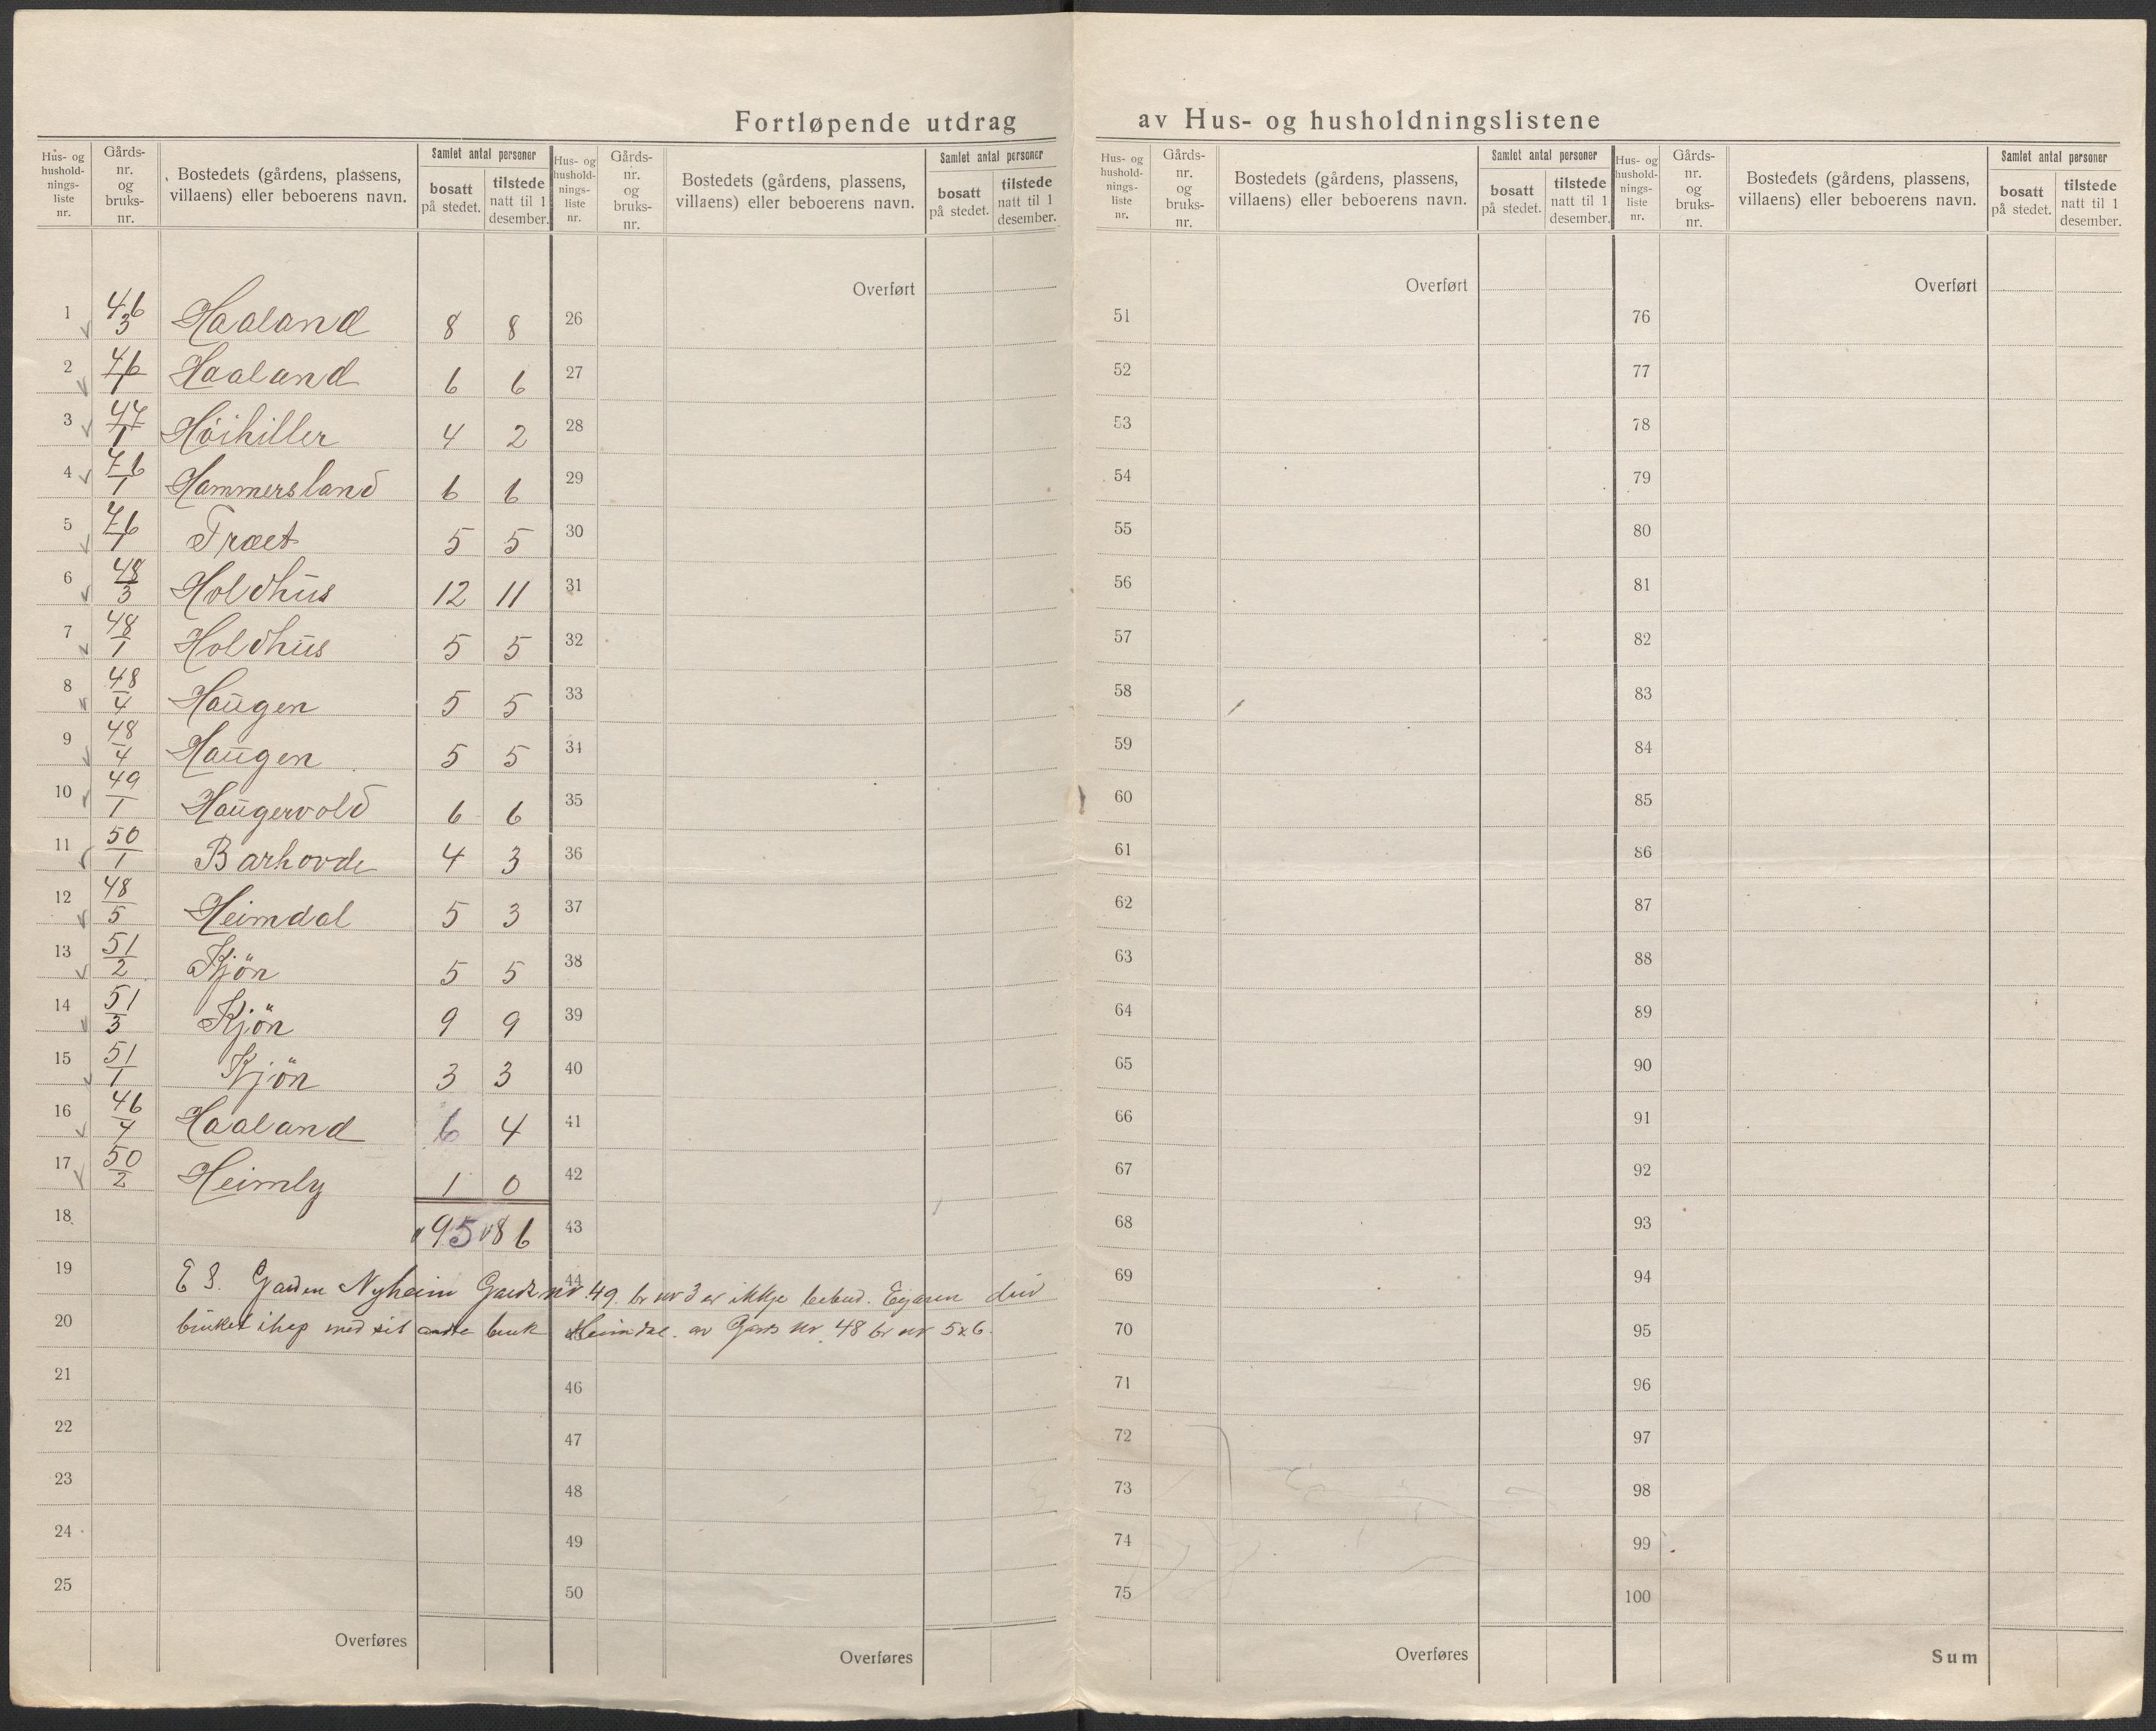 Fortløpende utdrag av Hus- og husholdningslistene
Hus- og hushold-nings-liste nr. Gårds-nr. og bruks-nr. Bostedets (gårdens, plassens, villaens) eller beboerens navn. Samlet antal personer bosatt på stedet. tilstede natt til 1 desember.
1 46/3 Haaland 8 8
2 46/1 Haaland 6 6
3 47/1 Höihiller 4 2
4 76/1 Hammersland 6 6
5 76/1 Træet 5 5
6 48/3 Holdhus 12 11
7 48/1 Holdhus 5 5
8 48/4 Haugen 5 5
9 48/4 Haugen 5 5
10 49/1 Haugervold 6 6
11 50/1 Barhovde 4 3
12 48/5 Heimdal 5 3
13 51/2 Kjön 5 5
14 51/3 Kjön 9 9
15 51/1 Kjön 3 3
16 46/4 Haaland 6 4
17 50/2 Heimly 1 0
18 95 86
19 E S. Garden Nyheim Gards nr 49. br nr 3 er ikkje bebud. Eigaren driv
20 bruket ihop med sit andre bruk Heimdal. av Gards nr 48 br nr 5 x 6.
21
22
23
24
25
Overføres
Hus- og hushold-nings-liste nr. Gårds-nr. og bruks-nr. Bostedets (gårdens, plassens, villaens) eller beboerens navn. Samlet antal personer bosatt på stedet. tilstede natt til 1 desember.
Overført
26
27
28
29
30
31
32
33
34
35
36
37
38
39
40
41
42
43
44
46
47
48
49
50
Overføres
Hus- og hushold-nings-liste nr. Gårds-nr. og bruks-nr. Bostedets (gårdens, plassens, villaens) eller beboerens navn. Samlet antal personer bosatt på stedet. tilstede natt til 1 desember.
Overført
51
52
53
54
55
56
57
58
59
60
61
62
63
64
65
66
67
68
69
70
71
72
73
74
75
Overføres
Hus- og hushold-nings-liste nr. Gårds-nr. og bruks-nr. Bostedets (gårdens, plassens, villaens) eller beboerens navn. Samlet antal personer bosatt på stedet. tilstede natt til 1 desember.
Overført
76
77
78
79
80
81
82
83
84
85
86
87
88
89
90
91
92
93
94
95
96
97
98
99
100
Sum